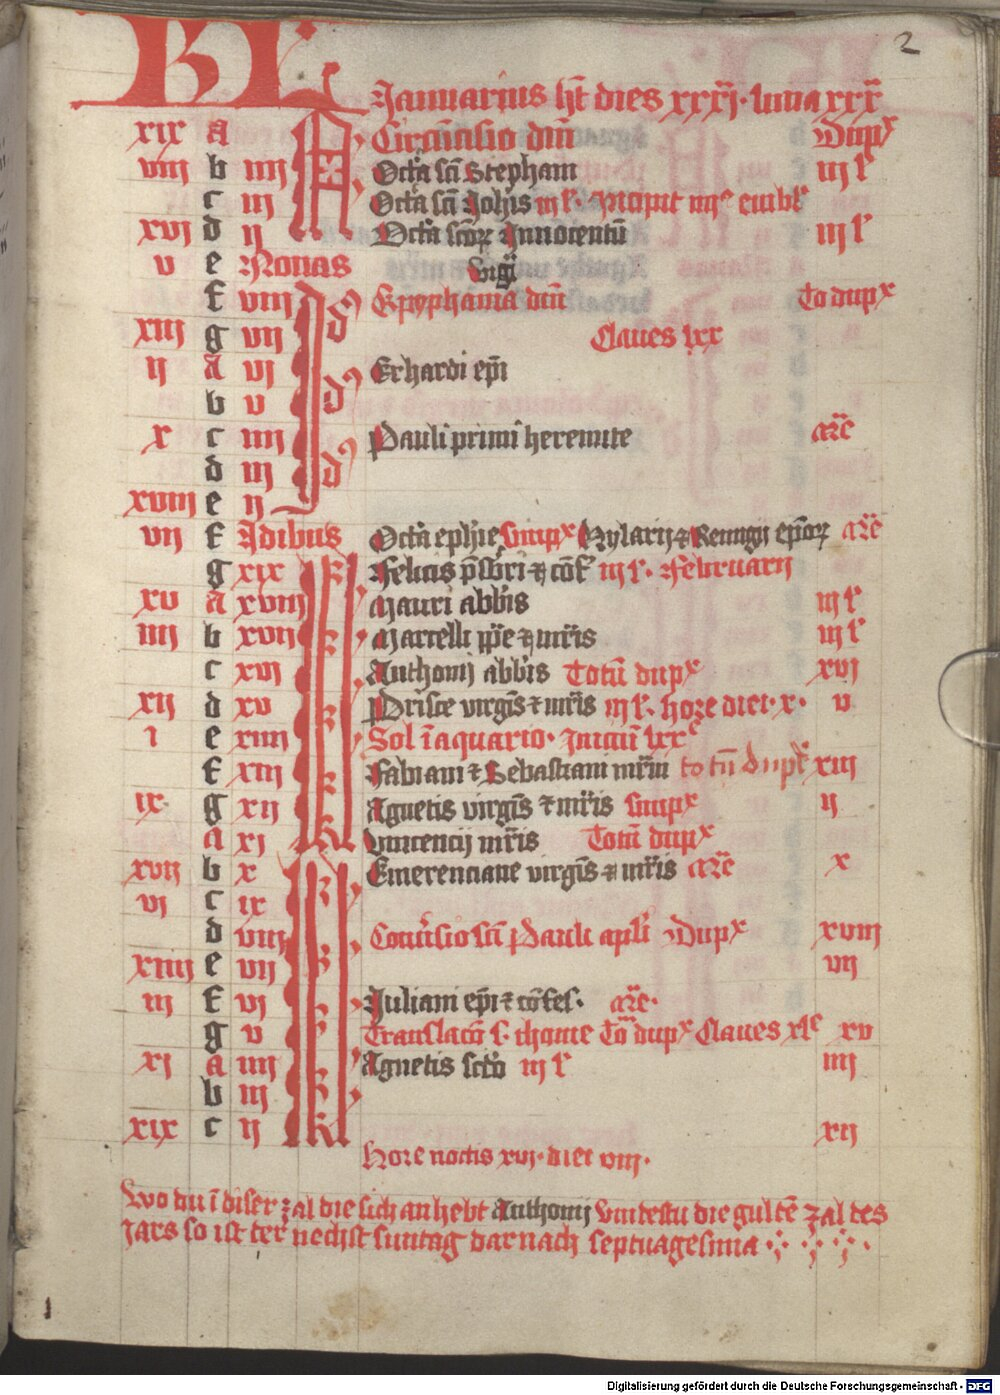 2
KL Januarius ht dies xxxi. luna xxx
xix a Circumcisio dni Dupx
viii b iiii Octa sci Stephani iii l
c iii Octa sci Johis iii l. Accipit emb
xvi d ii Octa scor Innocentu iii l
v e Nonas vigi
f viii Epyphania dni To dupx
xiii g vii Claves lxx
ii a vi Erhardi epi
b v
x c iiii Pauli primi heremite are
d iii
xviii e ii
vii f Idibus Octa ephie simpx Hylarij et Remigij epor are
g xix Felicis psbri et cof iii l. Februarij
xv a xviii Mauri abbis iii l
iiii b xvii Marcelli ppe et mris iii l
c xvi Anthonij abbis Totu dupx xvi
xii d xv Prisce virgis et mris iii l. hore diei. x. v
i e xiiii Sol i aquario. Iniciu lxx
f xiii Fabiani et Sebastiani mrm totu dupl xiii
ix g xii Agnetis virgis et mris simpx ii
a xi Vincencij mris Totu dupx
xvii b x Emerenciane virgis et mris are x
vi c ix
d viii Conversio sci Pauli apli Dupx xviii
xiiii e vii vii
iii f vi Juliani epi et cofes. are.
g v Translaco s. thome To dupx Claves xl xv
xi a iiii Agnetis scdo iii l iiii
b iii
xix c ii xii
Hore noctis xvi. diei viii.
Wo du i diser zal die sich anhebt Anthonij vindestu die gulte zal des
Jars so ist der nechst suntag darnach septuagesima
1
Digitalisierung gefördert durch die Deutsche Forschungsgemeinschaft - DFG